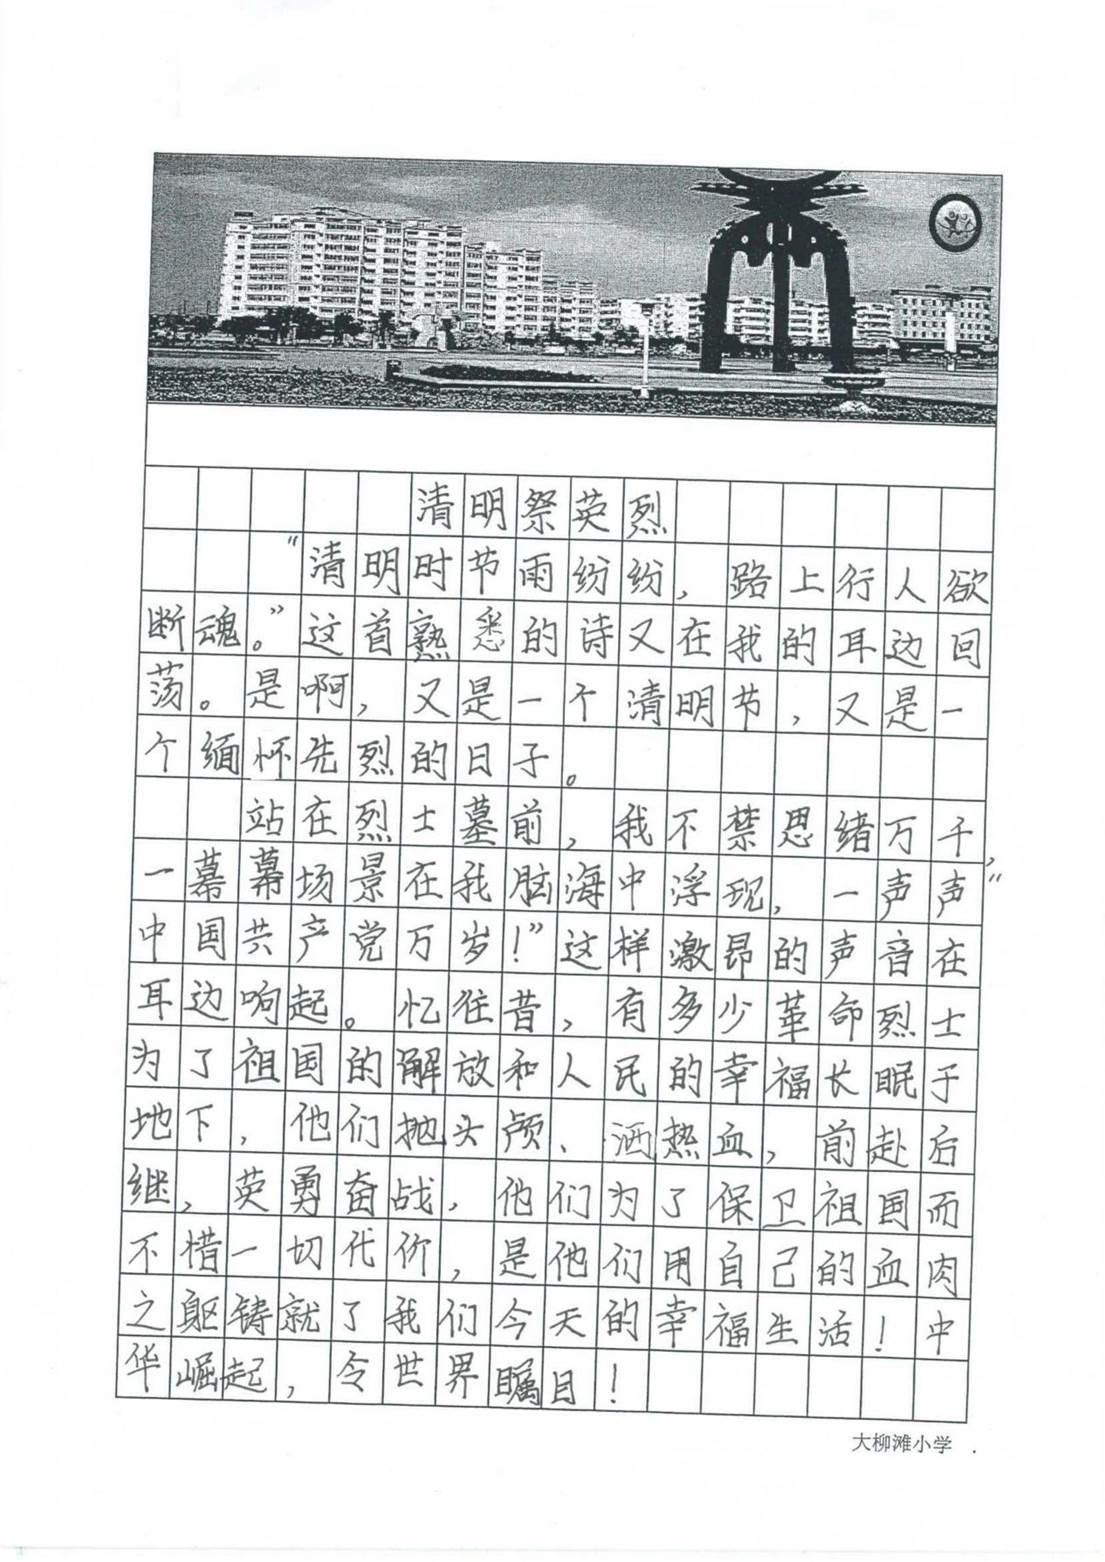 清明祭英烈
“清明时节雨纷纷，路上行人欲
断魂。”这首熟悉的诗又在我的耳边回
荡。是啊，又是一个清明节，又是一
个缅怀先烈的日子。
站在烈士墓前，我不禁思绪万千，
一幕幕场景在我脑海中浮现，一声声“
中国共产党万岁！”这样激昂的声音在
耳边响起。忆往昔，有多少革命烈士
为了祖国的解放和人民的幸福长眠于
地下，他们抛头颅、洒热血，前赴后
继，英勇奋战，他们为了保卫祖国而
不惜一切代价，是他们用自己的血肉
之躯铸就了我们今天的幸福生活！中
华崛起，令世界瞩目！
大柳滩小学